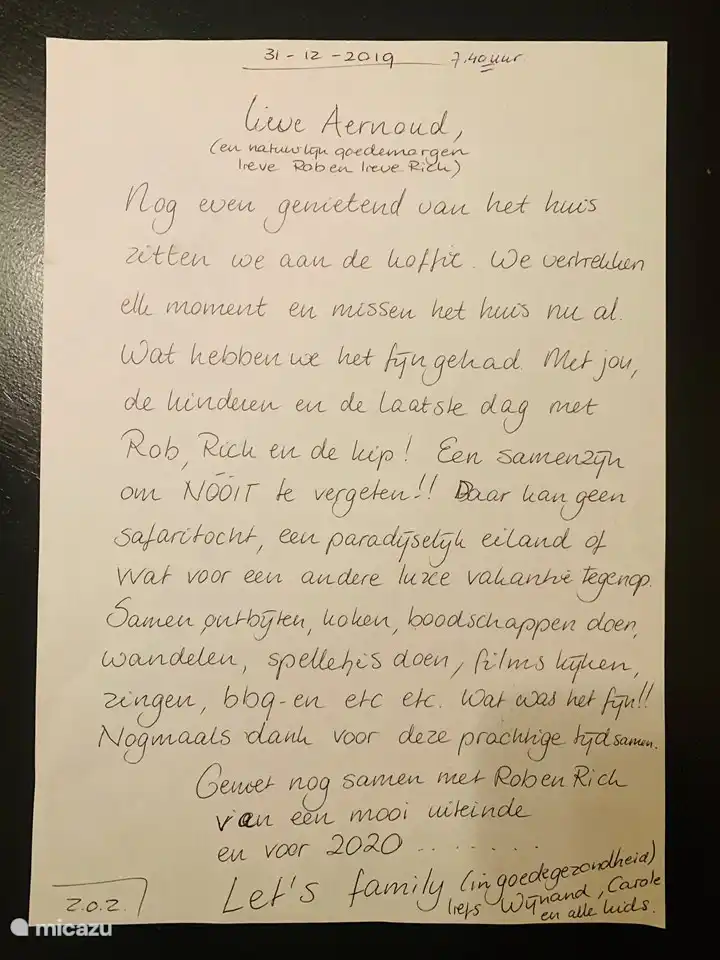 31-12-2019 7.40 uur
Lieve Aernoud,
(en natuurlijk goedemorgen
lieve Rob en lieve Rich)
Nog even genietend van het huis
zitten we aan de koffie. We vertrekken
elk moment en missen het huis nu al.
Wat hebben we het fijn gehad. Met jou,
de kinderen en de laatste dag met
Rob, Rich en de kip! Een samenzijn
om NÓÓIT te vergeten!! Daar kan geen
safaritocht, een paradijselijk eiland of
wat voor een andere luxe vakantie tegenop.
Samen ontbijten, koken, boodschappen doen,
wandelen, spelletjes doen, films kijken,
zingen, bbq-en etc etc. Wat was het fijn!!
Nogmaals dank voor deze prachtige tijd samen.
Geniet nog samen met Rob en Rich
van een mooi uiteinde
en voor 2020 ........
Let's family (in goede gezondheid)
liefs Wijnand, Carole
en alle kids.
z.o.z.
micazu